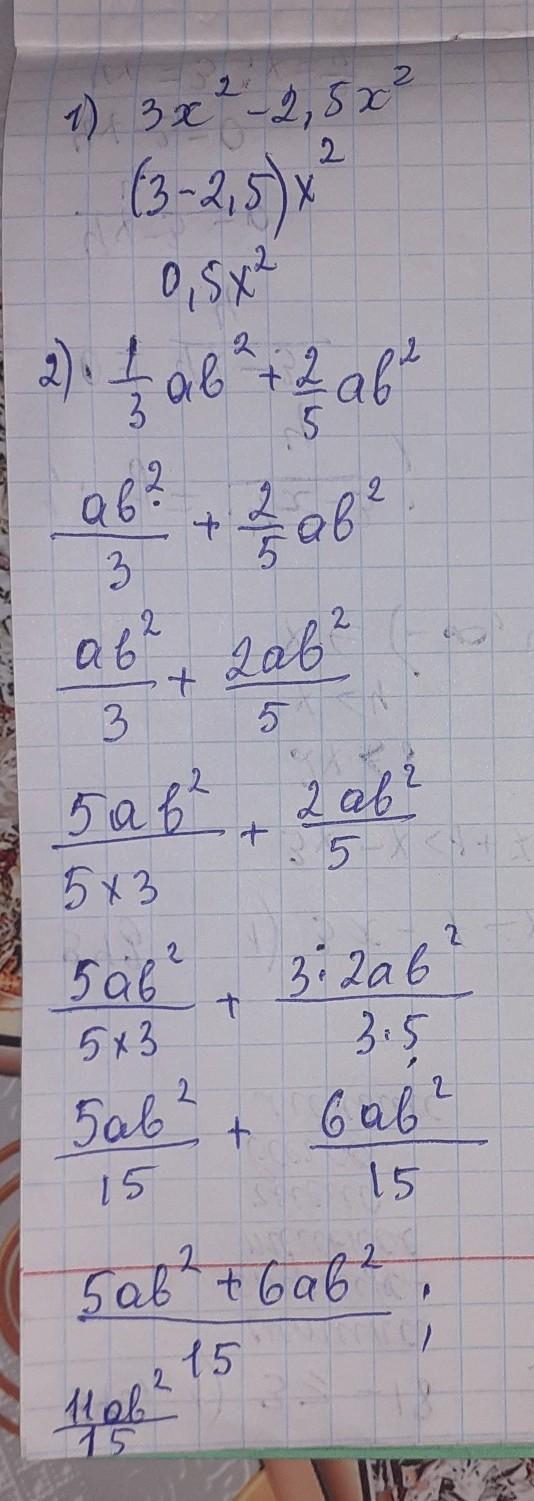 1) 3x² - 2,5x²
(3-2,5)x²
0,5x²
2) 1/3 ab² + 2/5 ab²
ab²/3 + 2/5 ab²
ab²/3 + 2ab²/5
5ab²/5×3 + 2ab²/5
5ab²/5×3 + 3·2ab²/3·5
5ab²/15 + 6ab²/15
5ab² + 6ab²/15;
11ab²/15